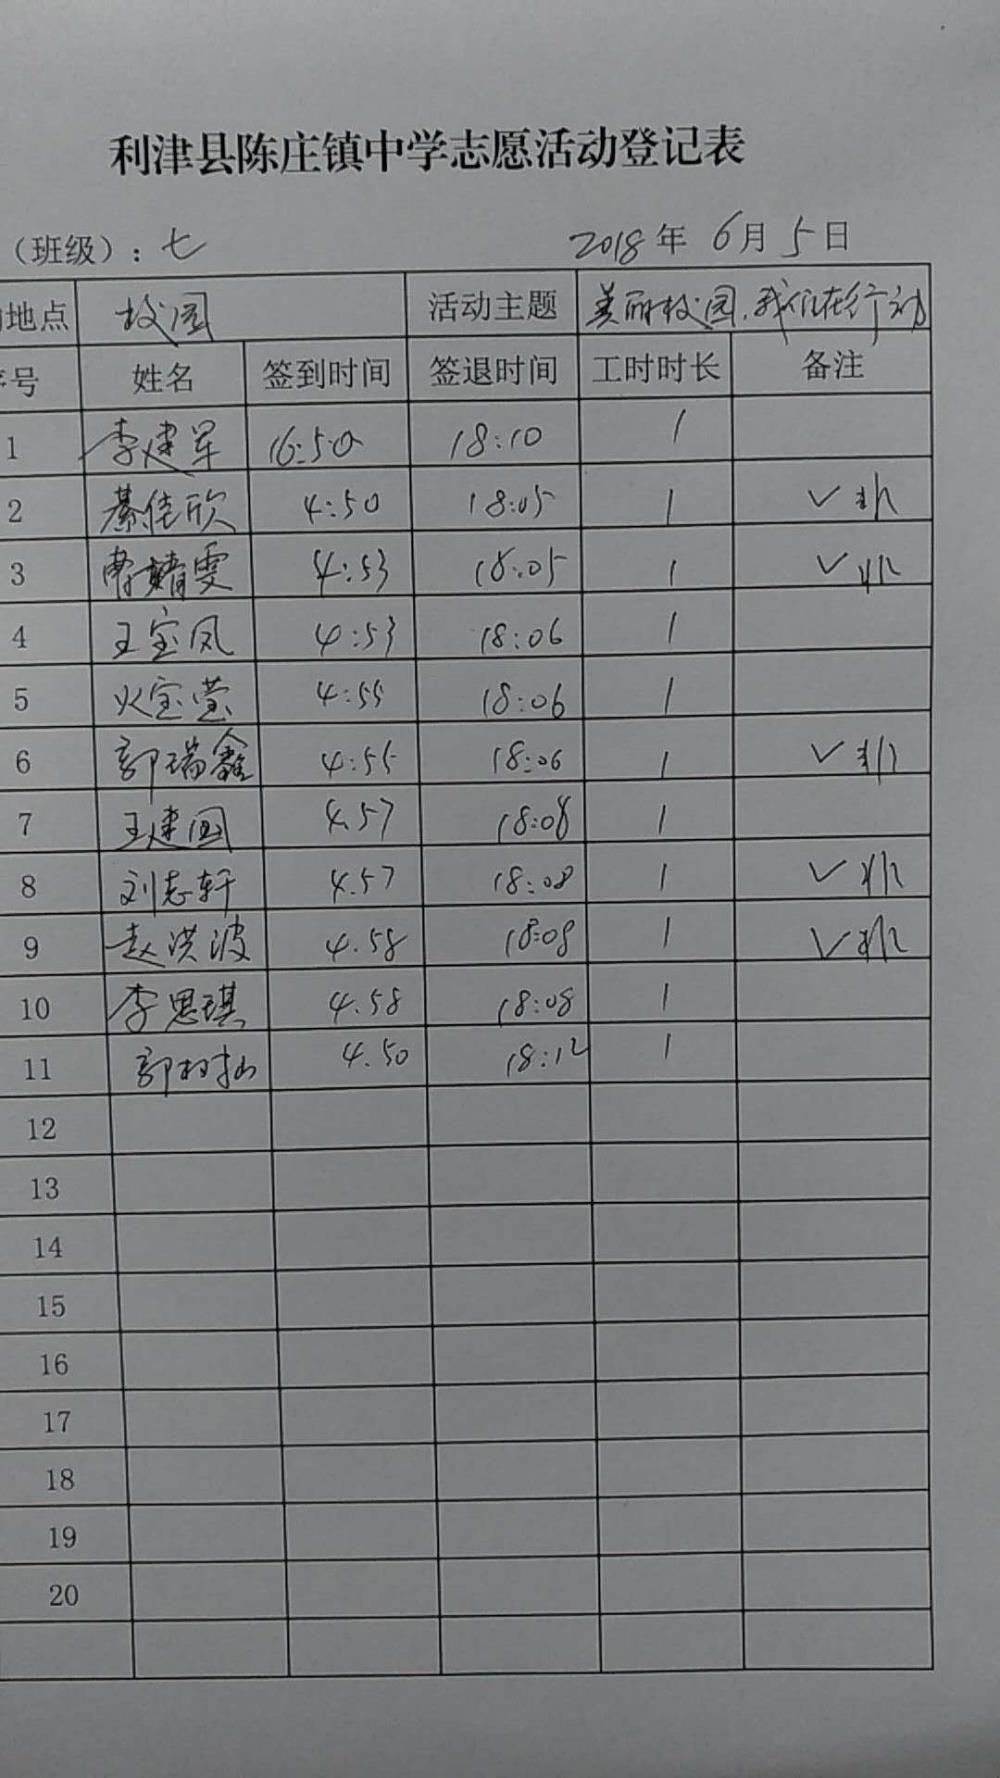 利津县陈庄镇中学志愿活动登记表
（班级）：七 2018年 6月 5日
地点 校园 活动主题 美丽校园，我们在行动
号 姓名 签到时间 签退时间 工时时长 备注
1 李建军 16:50 18:10 1
2 綦佳欣 4:50 18:05 1 ✓
3 靖雯 4:53 18:05 1 ✓
4 王宝凤 4:53 18:06 1
5 宝莹 4:55 18:06 1
6 郭瑞鑫 4:55 18:06 1 ✓
7 王建国 4.57 18:08 1
8 刘志轩 4.57 18:08 1 ✓
9 赵洪波 4.58 18:08 1 ✓
10 李思琪 4.58 18:08 1
11 郭 4.50 18:12 1
12
13
14
15
16
17
18
19
20